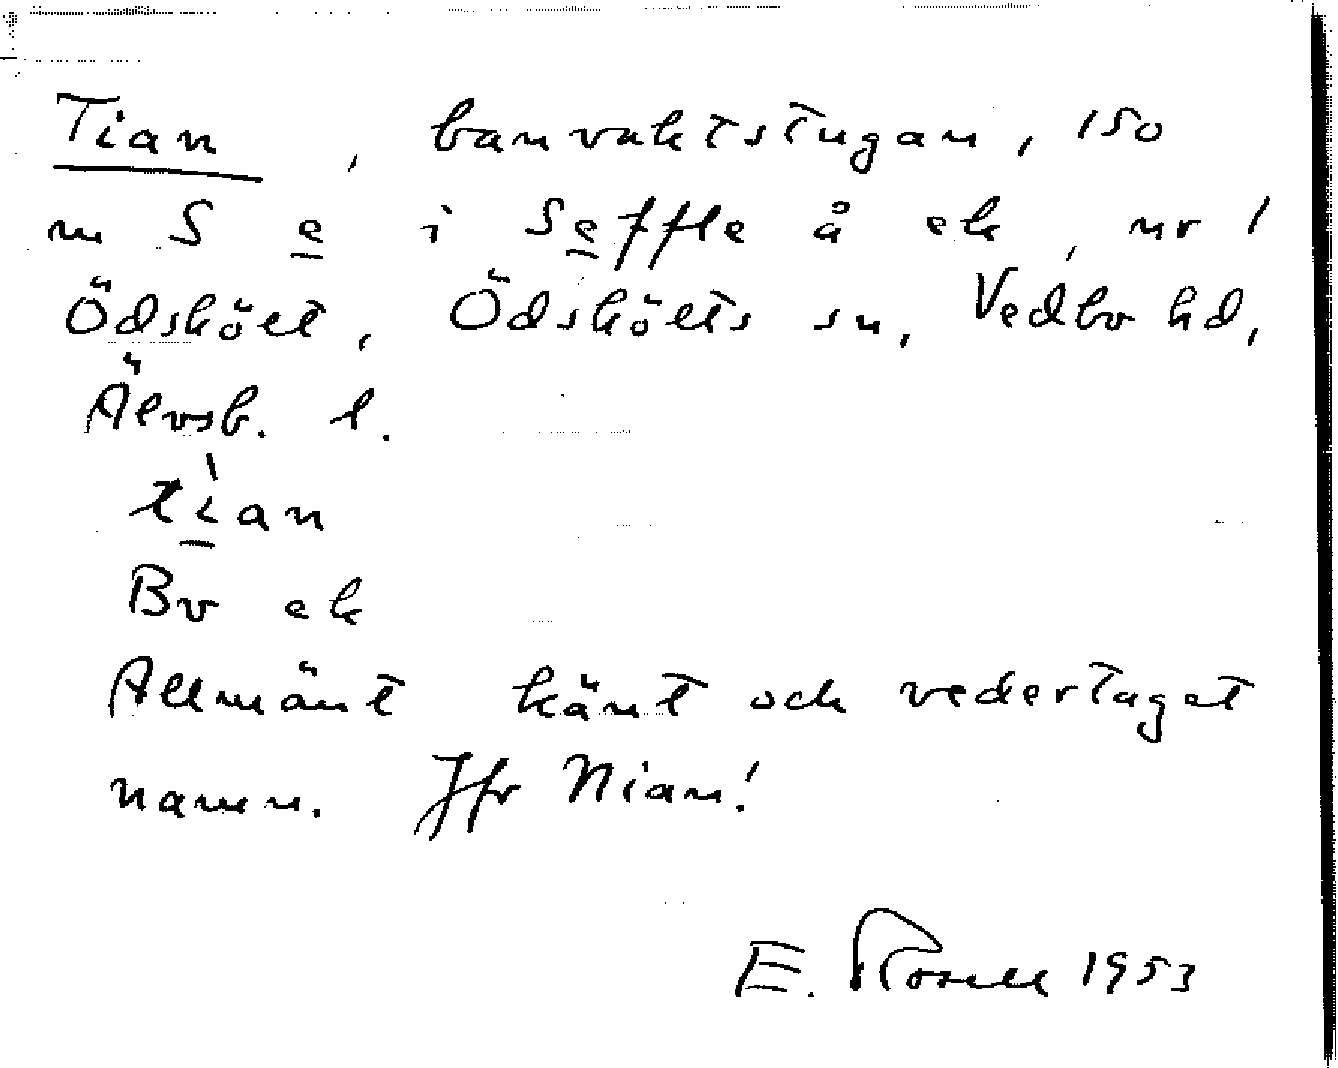 Tian, banvaktstugan, 150
m S e i Seffle å ek, nr 1
Ödskölt, Ödskölts sn, Vedbo hd,
Älvsb. l.
tìan
Bv ek
Allmänt känt och vedertaget
namn. Jfr Nian!
E. Rosell 1953